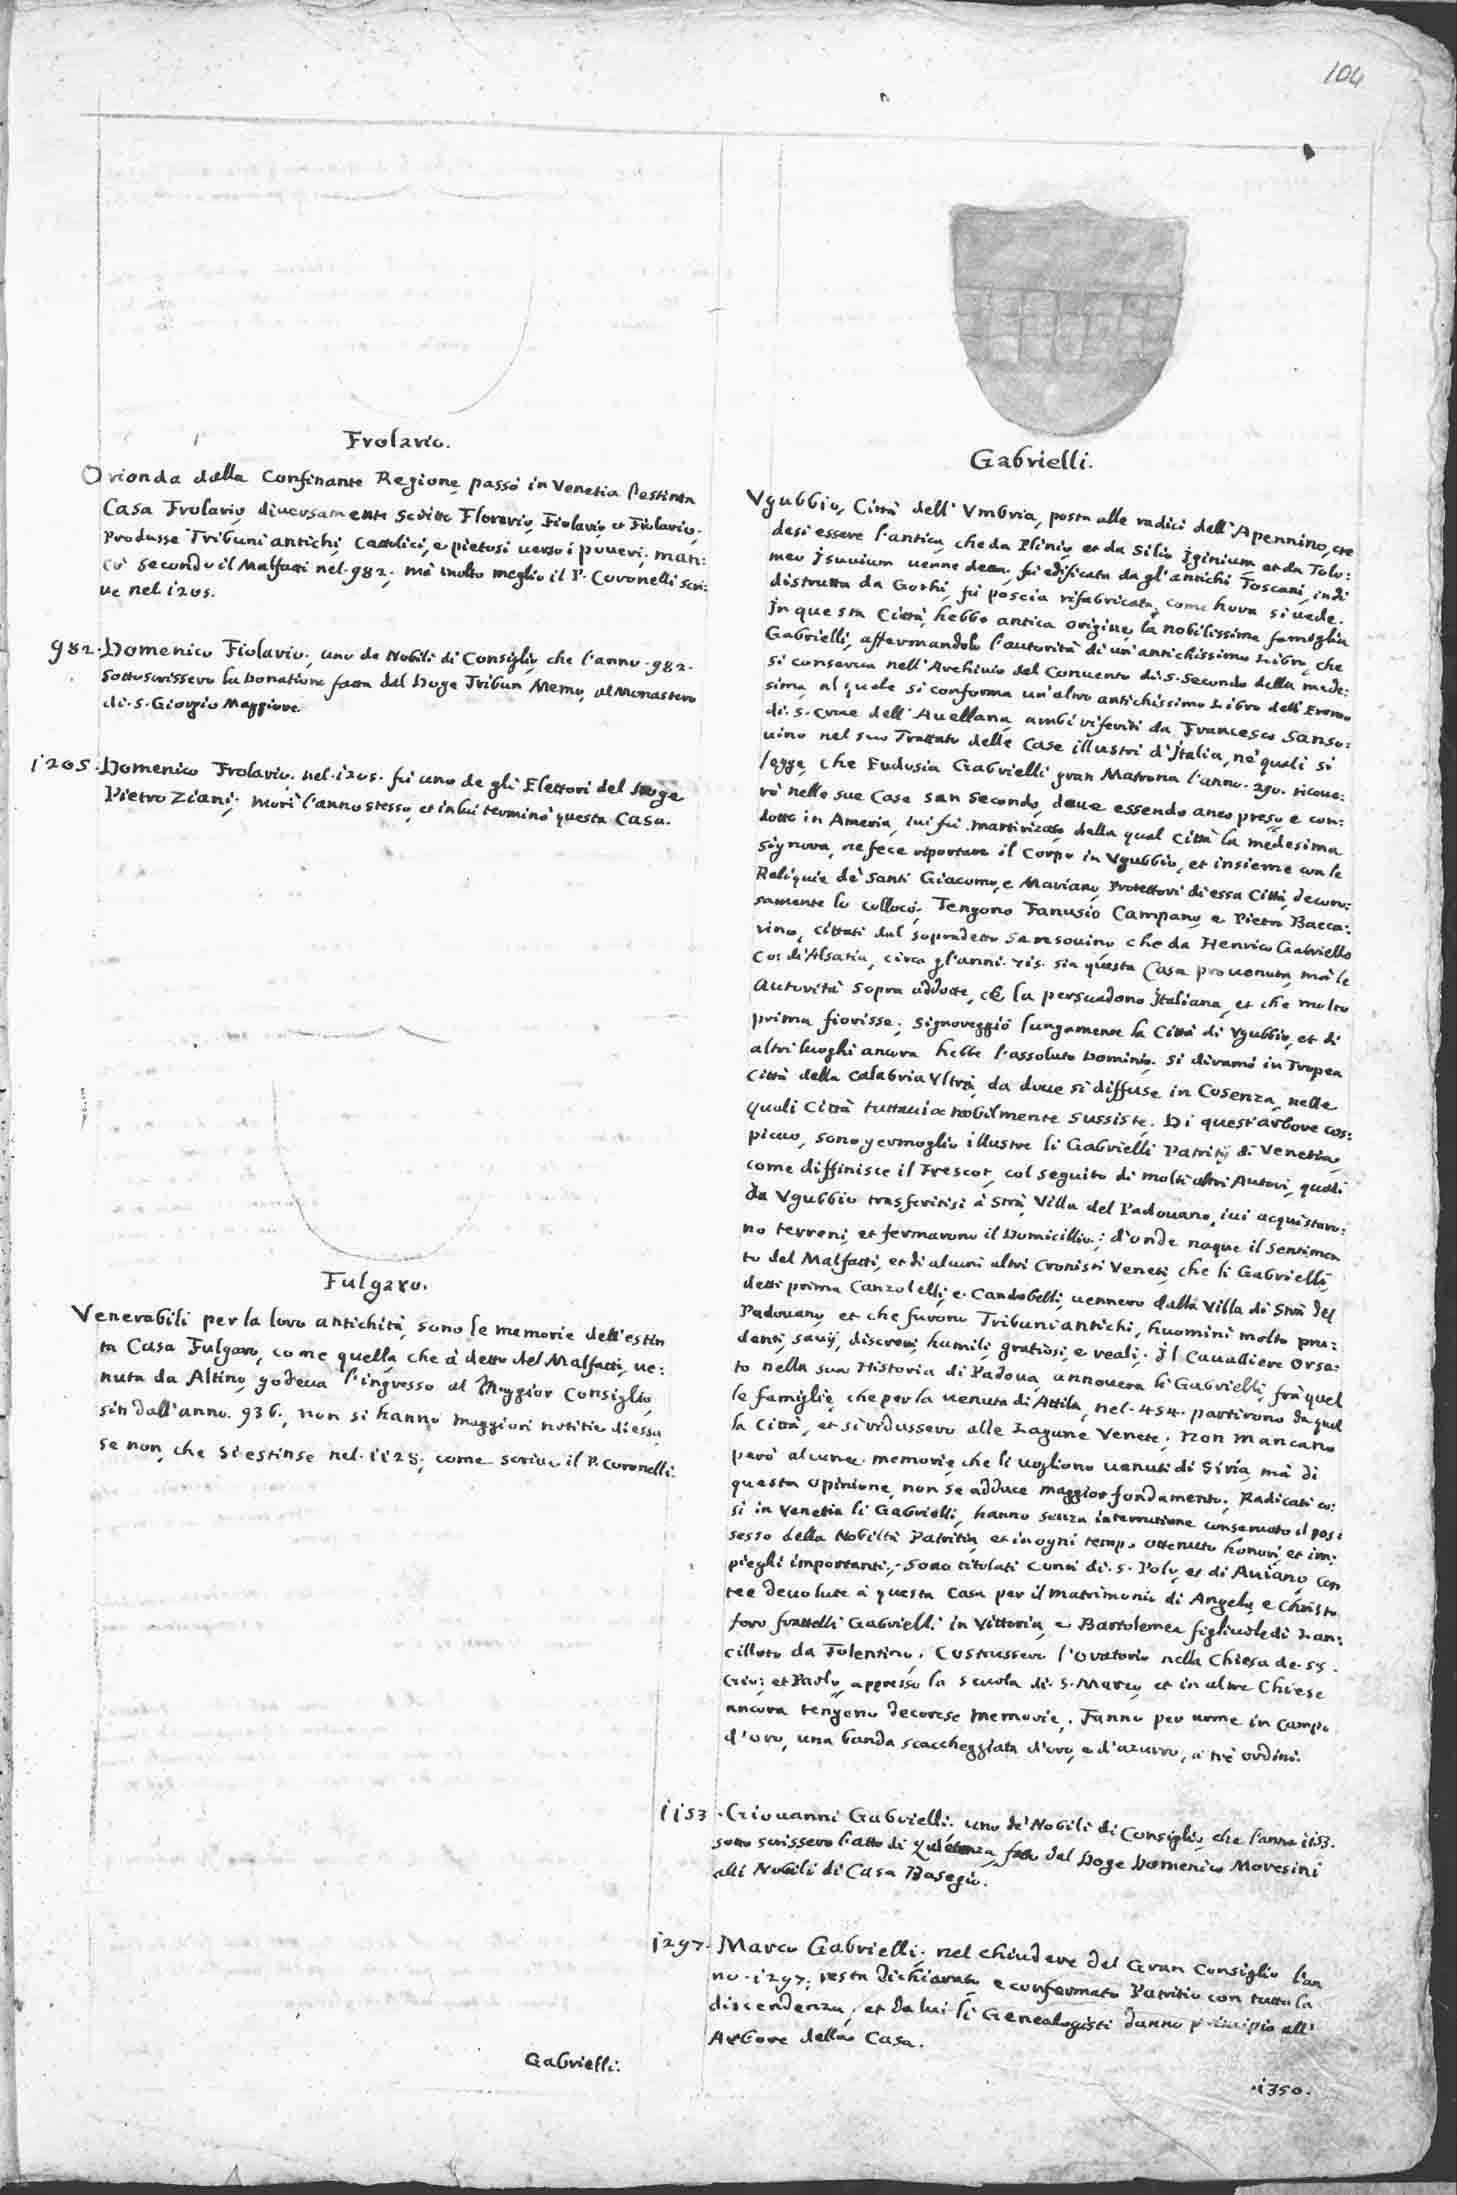 104
Frolario.
Orionda dalla Confinante Regione, passò in Venetia l'estinta
Casa Frolario, diuersamente scritta Florerio, Fiolario et Frolario.
Produsse Tribuni antichi, Cattolici, e pietosi uerso i poueri; man:
cò secondo il Malfatti nel 982; mà molto meglio il P. Coronelli scri:
ue nel 1205.
982. Domenico Fiolario, uno de Nobili di Consiglio, che l'anno 982.
sottoscrissero la Donatione fatta dal Doge Tribun Memo, al Monastero
di S. Giorgio Maggiore.
1205. Domenico Frolario. nel 1205. fu uno de gli Elettori del Doge
Pietro Ziani; morì l'anno stesso, et in lui terminò questa Casa.
Fulgaro.
Venerabili per la loro antichità, sono le memorie dell'estin
ta Casa Fulgaro, come quella, che à detto del Malfatti, ue:
nuta da Altino, godeua l'ingresso al Maggior Consiglio,
sin dall'anno. 936., non si hanno maggiori notitie di essa,
se non, che si estinse nel 1128; come scriue il P. Coronelli.
Gabrielli.
Gabrielli.
Vgubbio, Città dell'Vmbria, posta alle radici dell'Apennino, cre
desi essere l'antica, che da Plinio, et da Silio Iginium et da Tolo:
meo Isuuium uenne detta, fù edificata da gl'antichi Toscani, indi
distrutta da Gothi, fù poscia rifabricata, come hora si uede.
In questa Città, hebbe antica origine, la nobilissima famiglia
Gabrielli, affermandolo l'autorità di un'antichissimo Libro, che
si conserua nell'Archiuio del Conuento di S. Secondo della mede:
sima, al quale si conforma un'altro antichissimo Libro dell'Eremo
di S. Croce dell'Auellana, ambi riferiti da Francesco Sanso:
uino nel suo Trattato delle Case illustri d'Italia, nè quali si
legge, che Eudosia Gabrielli gran Matrona l'anno 290. ricoue:
rò nelle sue Case San Secondo, doue essendo anco preso, e con:
dotto in Ameria, iui fù martirizato, dalla qual Città la medesima
Signora, ne fece riportare il Corpo in Vgubbio, et insieme con le
Reliquie de' Santi Giacomo, e Mariano, Protettori di essa Città, decoro:
samente lo collocò. Tengono Fanusio Campano, e Pietro Bacca:
rino, cittati dal sopradetto Sansouino che da Henrico Gabriello
Co: di Alsatia, circa gl'anni 715. sia questa Casa prouenuta, mà le
Autorità sopra addotte, ce la persuadono Italiana, et che molto
prima fiorisse; Signoreggiò lungamente la Città di Vgubbio, et di
altri luoghi ancora hebbe l'assoluto Dominio. Si diramò in Tropea
Città della Calabria Vltra, da doue si diffuse in Cosenza, nelle
quali Città tuttauia nobilmente sussiste. Di quest'arbore cos:
picuo, sono germoglio illustre li Gabrielli Patritij di Venetia,
come diffinisce il Frescot, col seguito di molti altri Autori, quali
da Vgubbio trasferitisi à Strà, Villa del Padouano, iui acquistaro:
no terreni, et fermarono il Domicillio; d'onde naque il sentimen
to del Malfatti, et di alcuni altri Cronisti Veneti, che li Gabrielli,
detti prima Canzolelli, e Candobelli, uennero dalla Villa di Strà del
Padouano, et che furono Tribuni antichi, huomini molto pru:
denti, sauij, discreti, humili, gratiosi, e reali; Il Caualliere Orsa:
to nella sua Historia di Padoua, annouera li Gabrielli, frà quel
le famiglie, che per la uenuta di Attila, nel 454. partirono da quel
la Città, et si ridussero alle Lagune Venete; Non mancano
però alcune memorie, che li uogliono uenuti di Siria, mà di
questa opinione, non se adduce maggior fondamento. Radicati co:
sì in Venetia li Gabrielli, hanno senza interrutione conseruato il pos:
sesso della Nobiltà Patritia, et in ogni tempo ottenuto honori, et im:
pieghi importanti. Sono titolati Conti di S. Polo, et di Auiano, Con
tee deuolute à questa Casa per il matrimonio di Angelo, e Christo
foro frattelli Gabrielli in Vittoria, e Bartolomea figliuole di Lan:
cilloto da Tolentino. Costrussero l'Oratorio nella Chiesa de SS.
Gio: et Paolo, appresso la Scuola di S. Marco, et in altre Chiese
ancora tengono decorose memorie. Fanno per arme in Campo
d'oro, una banda scaccheggiata d'oro, e d'azurro, à tre ordini.
1153. Giouanni Gabrielli. uno de' Nobili di Consiglio, che l'anno 1153.
sotto scrissero l'atto di Quietanza, fatto dal Doge Domenico Moresini
alli Nobili di Casa Basegio.
1297. Marco Gabrielli; nel chiudere del Gran Consiglio l'an
no 1297; resta dichiarato, e confermato Patritio con tutta la
discendenza, et da lui li Genealogisti danno principio all'
Arbore della Casa.
1350.